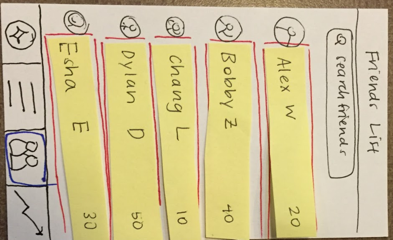 Friends List
Q search friends
Alex W 20
Bobby Z 40
Chang L 10
Dylan D 50
Esha E 30